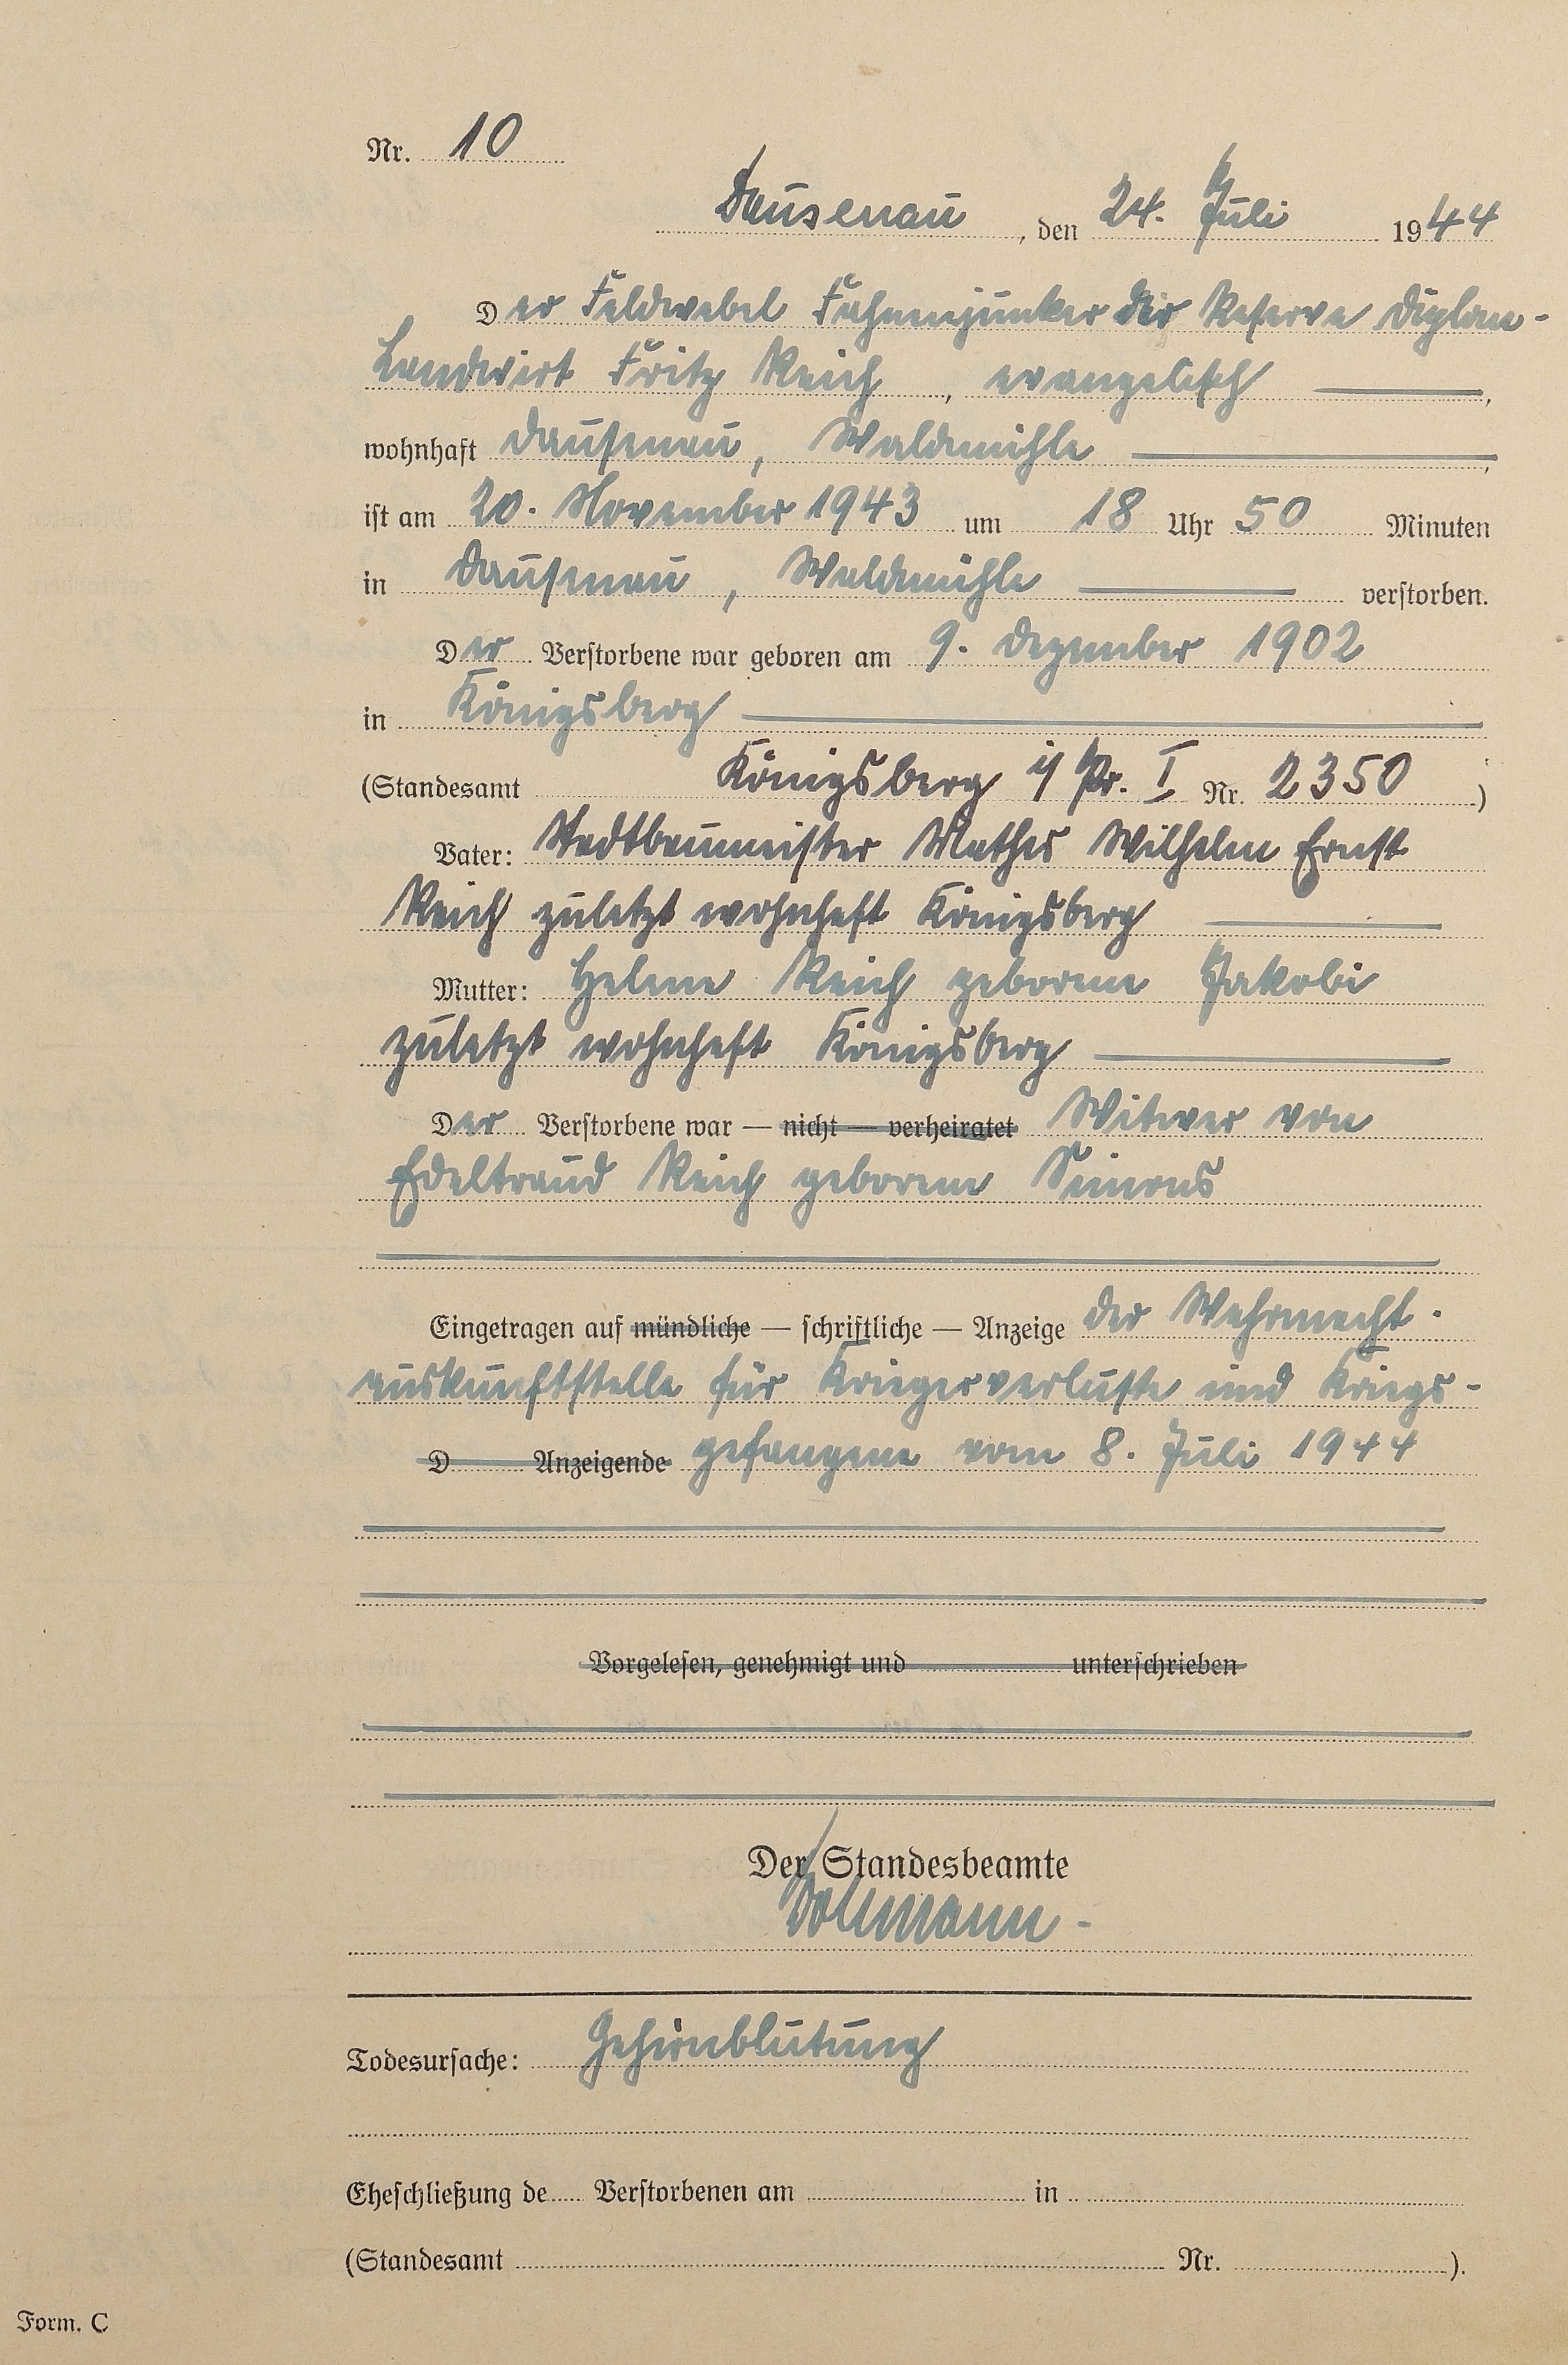 Nr. 10
Dausenau, den 24. Juli 1944
Der Feldwebel Fahnenjunker der Reserve Diplom-
Landwirt Fritz Reich, evangelisch,
wohnhaft Dausenau, Waldmühle,
ist am 20. November 1943 um 18 Uhr 50 Minuten
in Dausenau, Waldmühle verstorben.
Der Verstorbene war geboren am 9. Dezember 1902
in Königsberg
(Standesamt Königsberg i/Pr. I Nr. 2350)
Vater: Stadtbaumeister Mathes Wilhelm Ernst
Reich zuletzt wohnhaft Königsberg
Mutter: Helene Reich geborene Jakobi
zuletzt wohnhaft Königsberg
Der Verstorbene war — nicht — verheiratet Witwer von
Edeltraud Reich geborene Simons
Eingetragen auf mündliche — schriftliche — Anzeige der Wehrmacht-
auskunftstelle für Kriegerverluste und Kriegs-
D Anzeigende gefangene vom 8. Juli 1944
Vorgelesen, genehmigt und unterschrieben
Der Standesbeamte
Dollmann
Todesursache: Gehirnblutung
Eheschließung de Verstorbenen am in
(Standesamt Nr. ).
Form. C